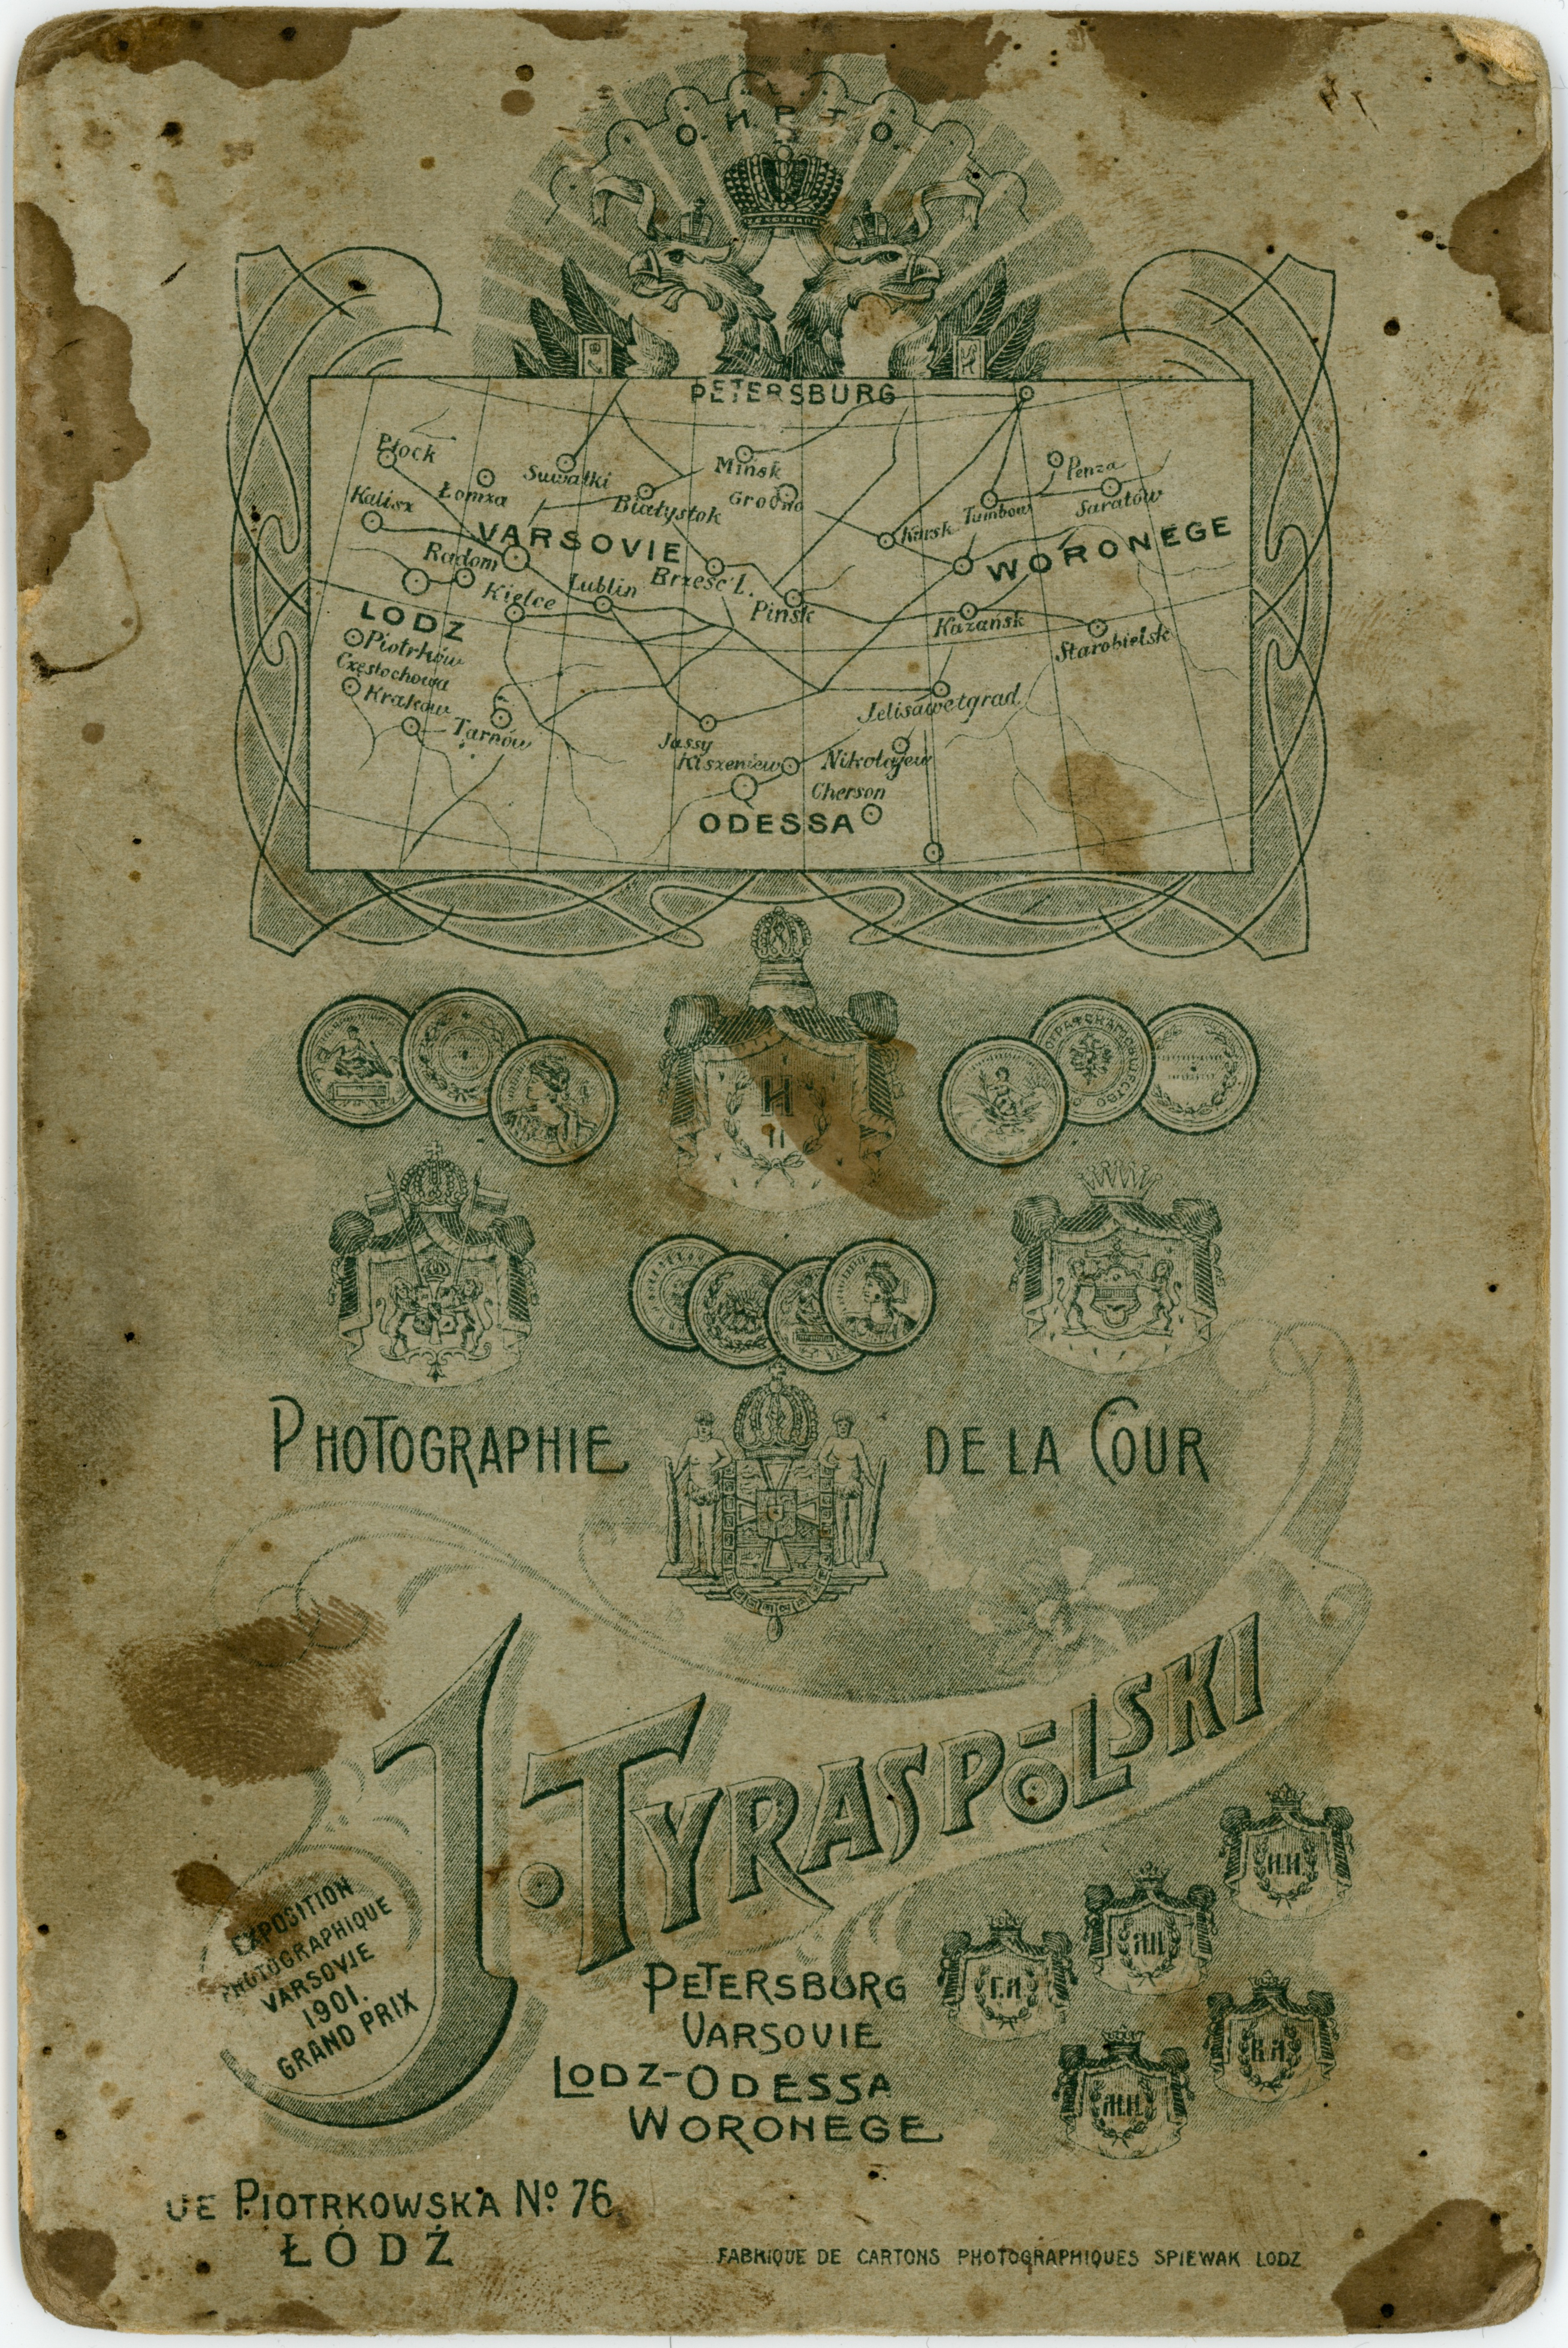 О.И.Р.Т.О
PETERSBURG
Płock
Suwałki
Mińsk
Penza
Łomża
Białystok
Grodno
Tumbow
Saratów
Kalisz
VARSOVIE
Kursk
WORONEGE
Radom
Brześć L.
Kielce
Lublin
Pińsk
LODZ
Kazańsk
Starobielsk
Piotrków
Częstochowa
Kraków
Tarnów
Jelisawetgrad
Jassy
Kiszeniew
Nikołajew
Cherson
ODESSA
H
II
PHOTOGRAPHIE DE LA COUR
J. TYRASPÓLSKI
EXPOSITION
PHOTOGRAPHIQUE
VARSOVIE
1901.
GRAND PRIX
PETERSBURG
VARSOVIE
LODZ-ODESSA
WORONEGE
Н.Н.
Г.А
В.А
М.Н.
UE PIOTRKOWSKA No. 76
ŁÓDŹ
FABRIQUE DE CARTONS PHOTOGRAPHIQUES SPIEWAK LODZ